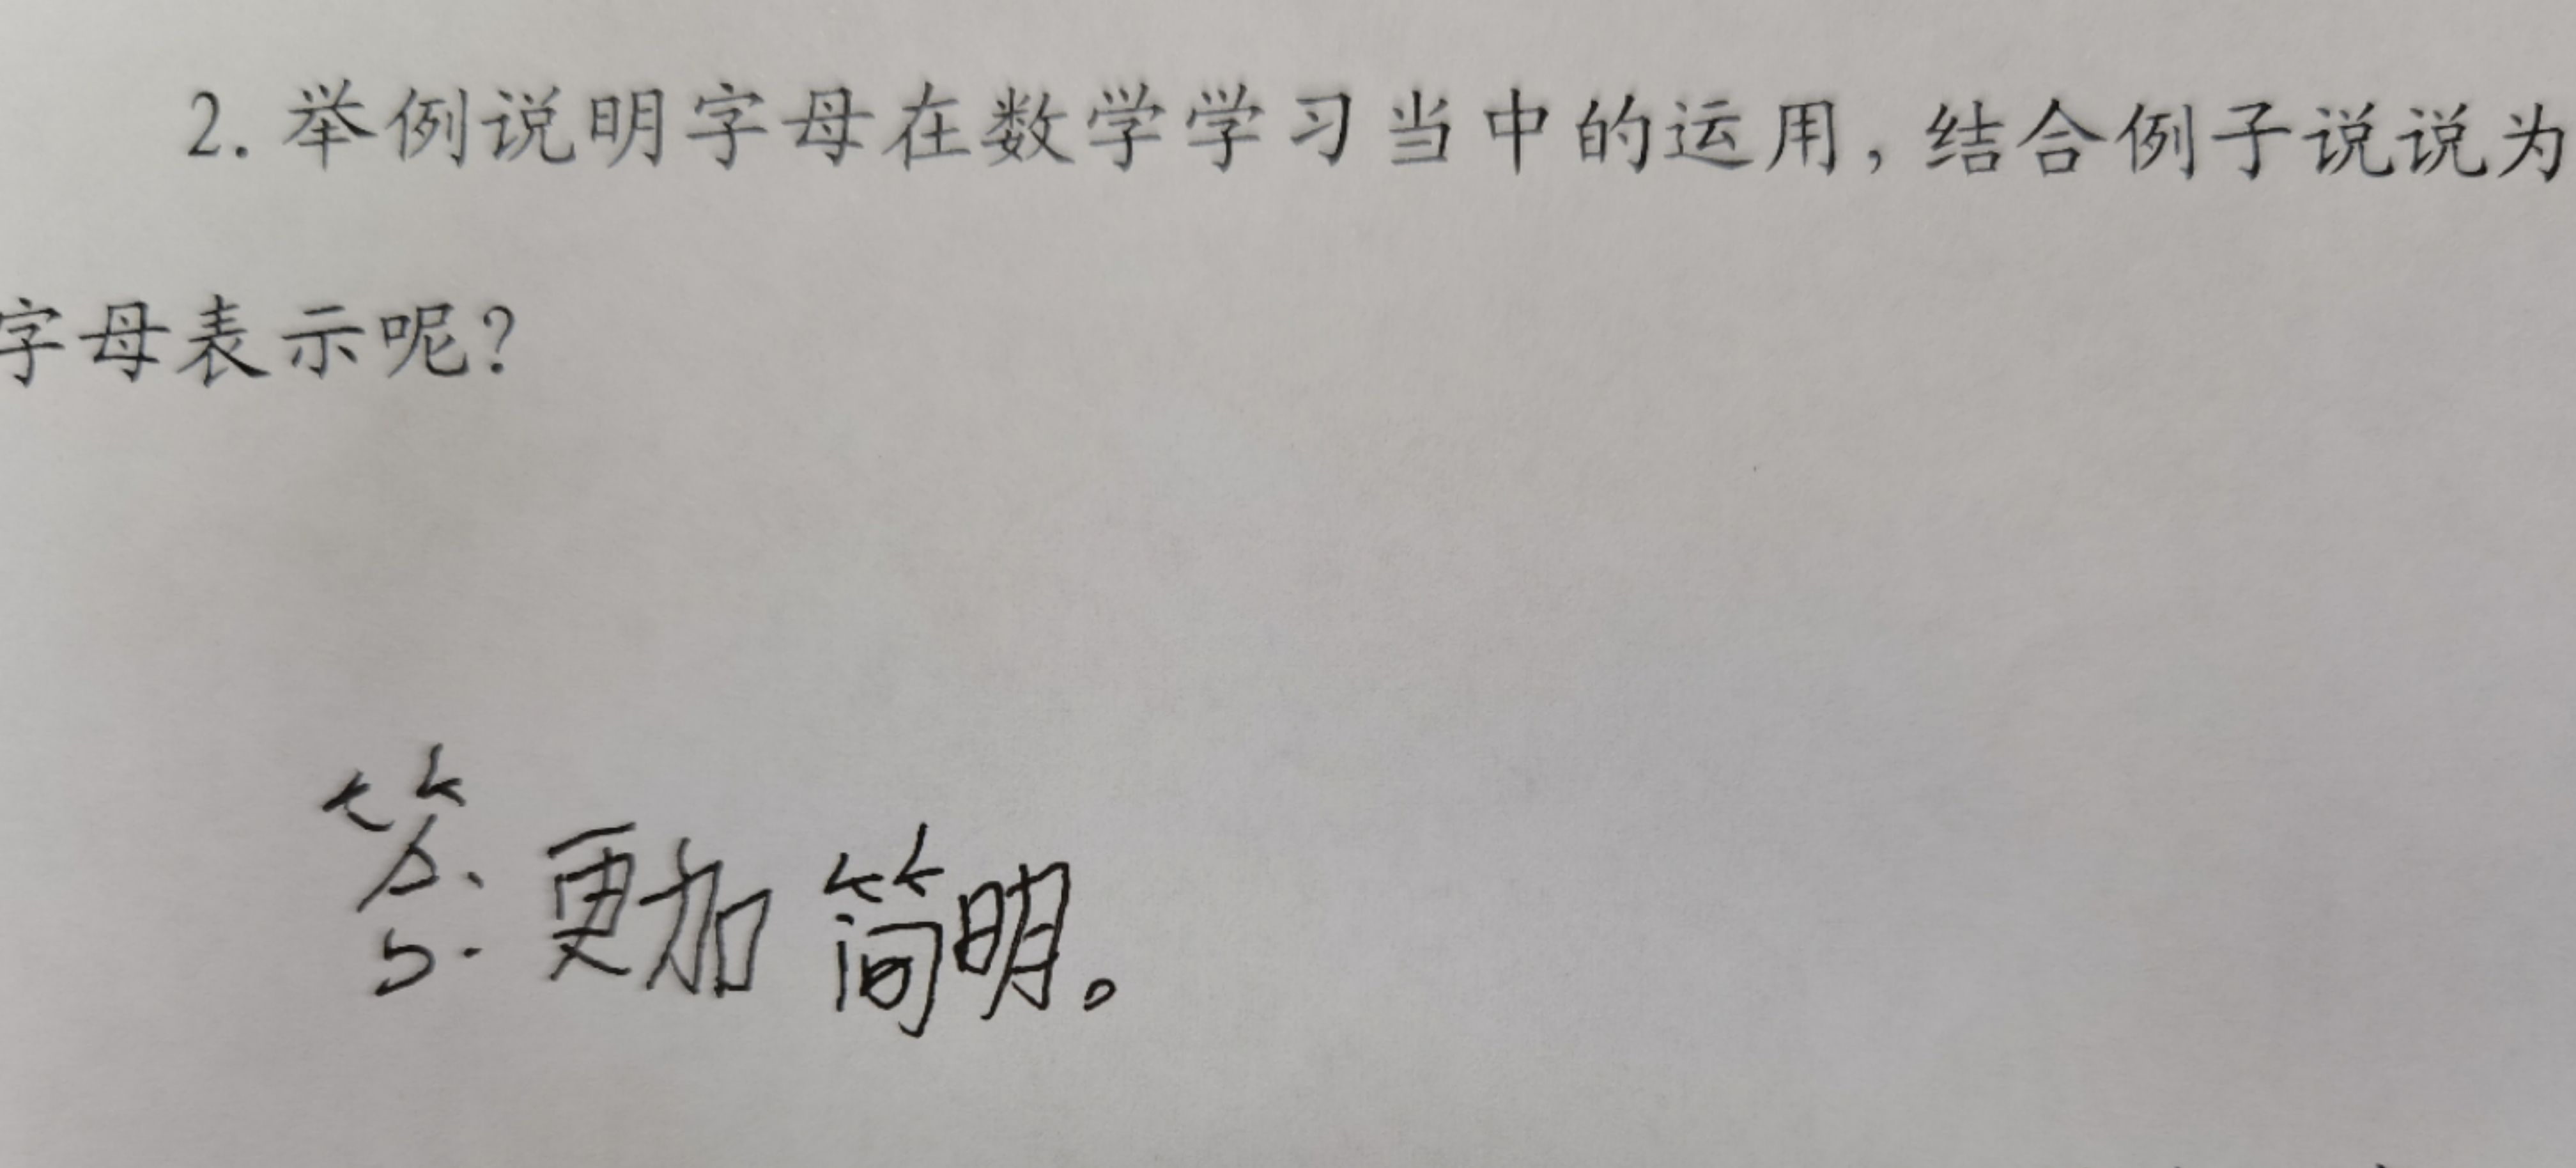 2. 举例说明字母在数学学习当中的运用，结合例子说说为
字母表示呢？
答：更加简明。